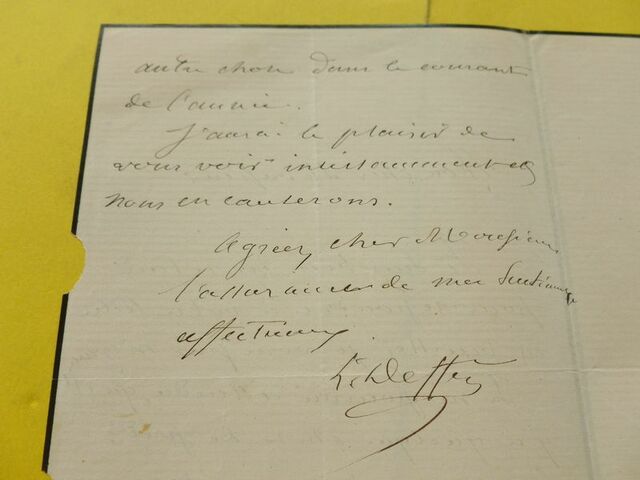 autre chose dans le courant
de l'année.
J'aurai le plaisir de
vous voir incessamment et
nous en causerons.
Agréez, cher Monsieur
l'assurance de mes sentiments
affectueux